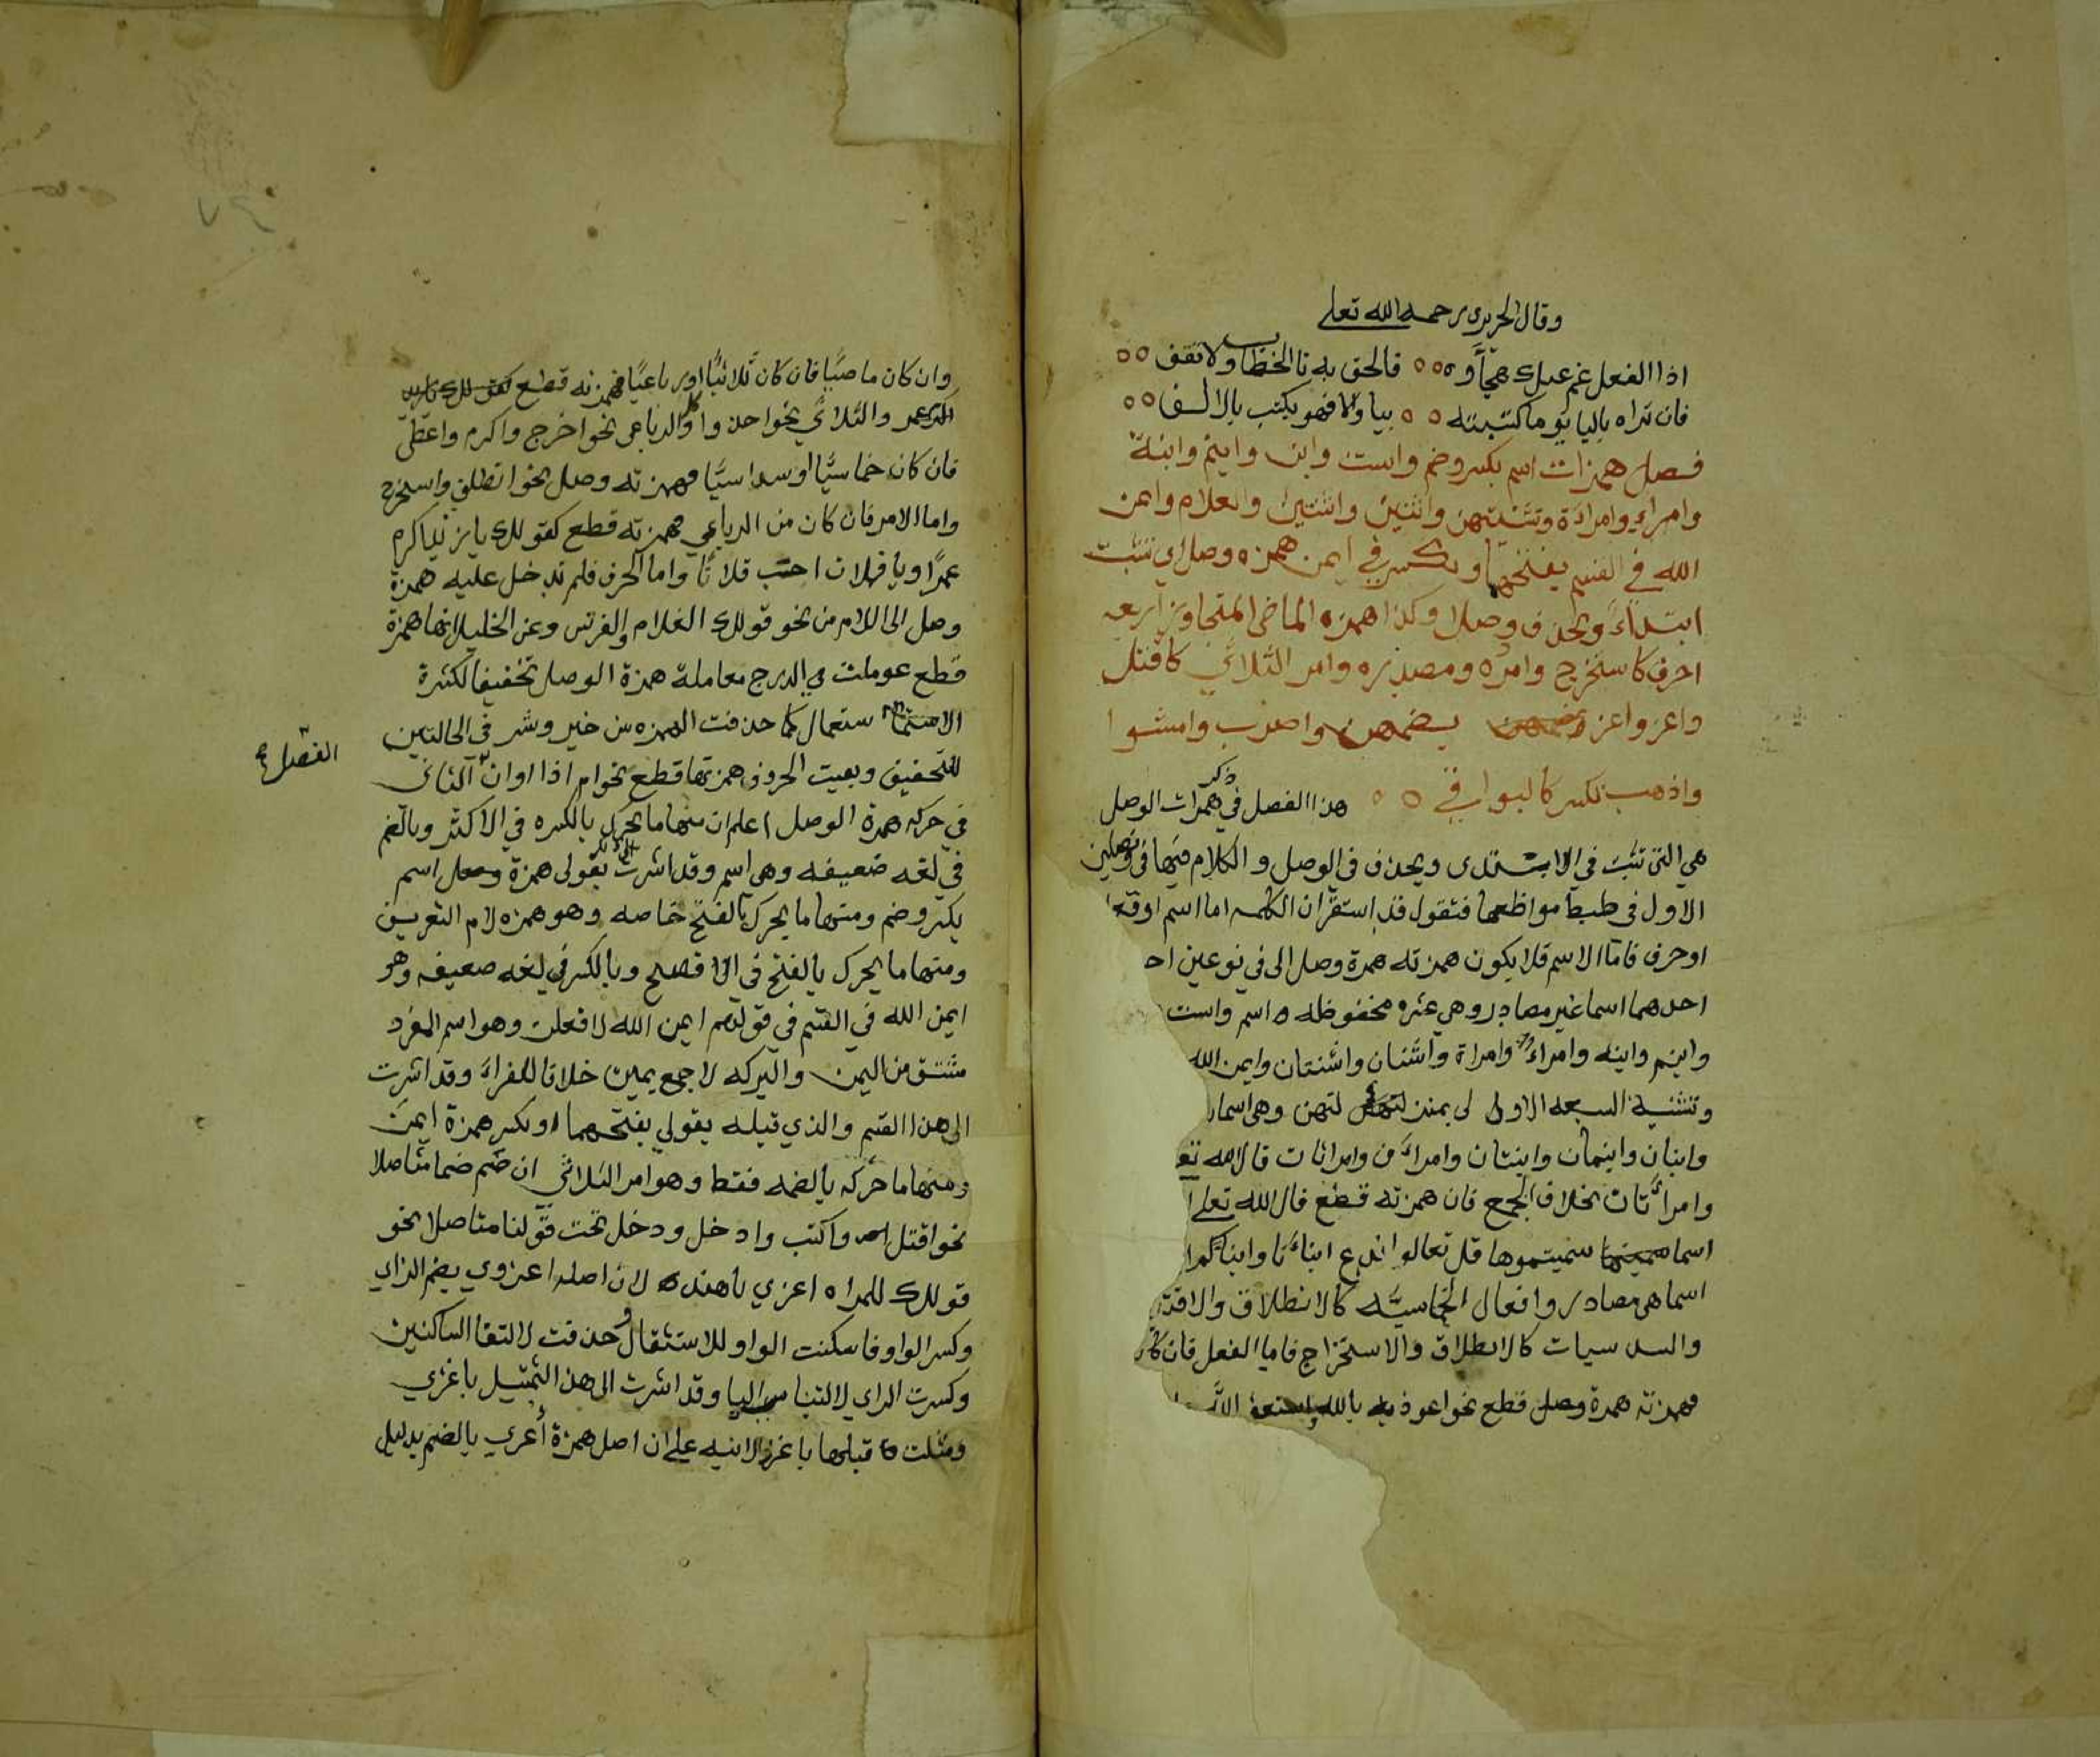 وقال الحريري رحمه الله تعلى
اذا الفعل غم عنك هجاؤه فالحق به تا الخطاب ولا تقف
فان تراه باليا يوما كتبته بيا والا فهو يكتب بالالف
فصل همزات اسم بكسر وضم واست وابن وابنم وابنة
وامراء وامراءة وتثنيتهن واثنين واثنتين والغلام وايمن
الله في القسم بفتحهما وبكسر في ايمن همزه وصل اي تثبت
ابتداءً وتحذف وصلا وكذا همزه الماضي المتجاوز اربعه
احرف كاستخرج وامره ومصدره وامر الثلاثي كاقتل
واغز واغزي بضمهن واضرب وامشوا
واذهب بكسر كالبواقي هذا الفصل في ذكر همزات الوصل
هي التي تثبت في الابتدى ويحذف في الوصل والكلام فيها في فصلين
الاول في ضبط مواضعها فنقول قد استقران الكلمه اما اسم او فعل
او حرف فاما الاسم فلا يكون همزته همزة وصل الى في نوعين احـ
احدهما اسما غير مصادر وهي عشره محفوظه اسم واست
وابنم وابنه وامراء وامراة واثنان واثنتان وايمن الله
وتثنية السبعه الاولى لي بمنز لتهن وهي اسما
وابنان وابنمان وابنتان وامراءن وامراتان قال الله تعـ
وامراتان بخلاف الجمع فان همزته قطع قال الله تعلى
اسما سميتموها قل تعالوا ندع ابناءنا وابناءكم
اسما هي مصادر وافعال الخماسيه كالانطلاق والاقتد
والسداسيات كالانطلاق والاستخراج فاما الفعل فان كان
فهمزته همزة وصل قطع نحو اعوذ بالله واستعذ الله
وان كان ماضيا فان كان ثلاثيا او رباعيا فهمزته قطع
والثلاثي نحو اخذ واكل والرباعي نحو اخرج واكرم واعطى
فان كان خماسيًا او سداسيًا فهمزته وصل نحو انطلق واستخرج
واما الامر فان كان من الرباعي فهمزته قطع كقولك يا زيد اكرم
عمرًا ويا فلان احب فلانًا واما الحرف فلم تدخل عليه همزة
وصل الى اللام من نحو قولك الغلام والفرس وعن الخليل انها همزة
قطع عوملت في الدرج معاملة همزة الوصل تخفيفا لكثرة
الاستعمال كما حذفت الهمزه من خير وشر في الحالتين
للتخفيف وبقيت الحروف همزتها قطع نحو ام اذا او ان الثاني
الفصل
في حركه همزة الوصل اعلم ان منها ما يحرك بالكسره في الاكثر وبالضم
في لغه ضعيفه وهي اسم وقد اشرت الى ذلك بقولي همزة وصل اسم
بكسر وضم ومنها ما يحرك بالفتح خاصه وهو همزه لام التعريف
ومنها ما يحرك بالفتح في الافصح وبالكسر في لغه ضعيفه وهو
ايمن الله في القسم في قولهم ايمن الله لافعلن وهو اسم المفرد
مشتق من اليمن والبركه لا جمع يمين خلافا للفراء وقد اشرت
الى هذا القسم والذي قبله بقولي بفتحهما او بكسر همزة ايمن
ومنها ما حركه بالضمه فقط وهو امر الثلاثي ان ضم ضما متاصلا
نحو اقتل واكتب وادخل ودخل تحت قولنا متاصلا نحو
قولك للمراه اغزي يا هند لان اصله اغزوي بضم الزاي
وكسر الواو فاسكنت الواو للاستثقال وحذفت لالتقا الساكنين
وكسرت الزاي لالتباس اليا وقد اشرت الى هذا التمثيل باغزي
ومثلت قبلها باغز لانبه على ان اصل همزة أغزي بالضم بدليل